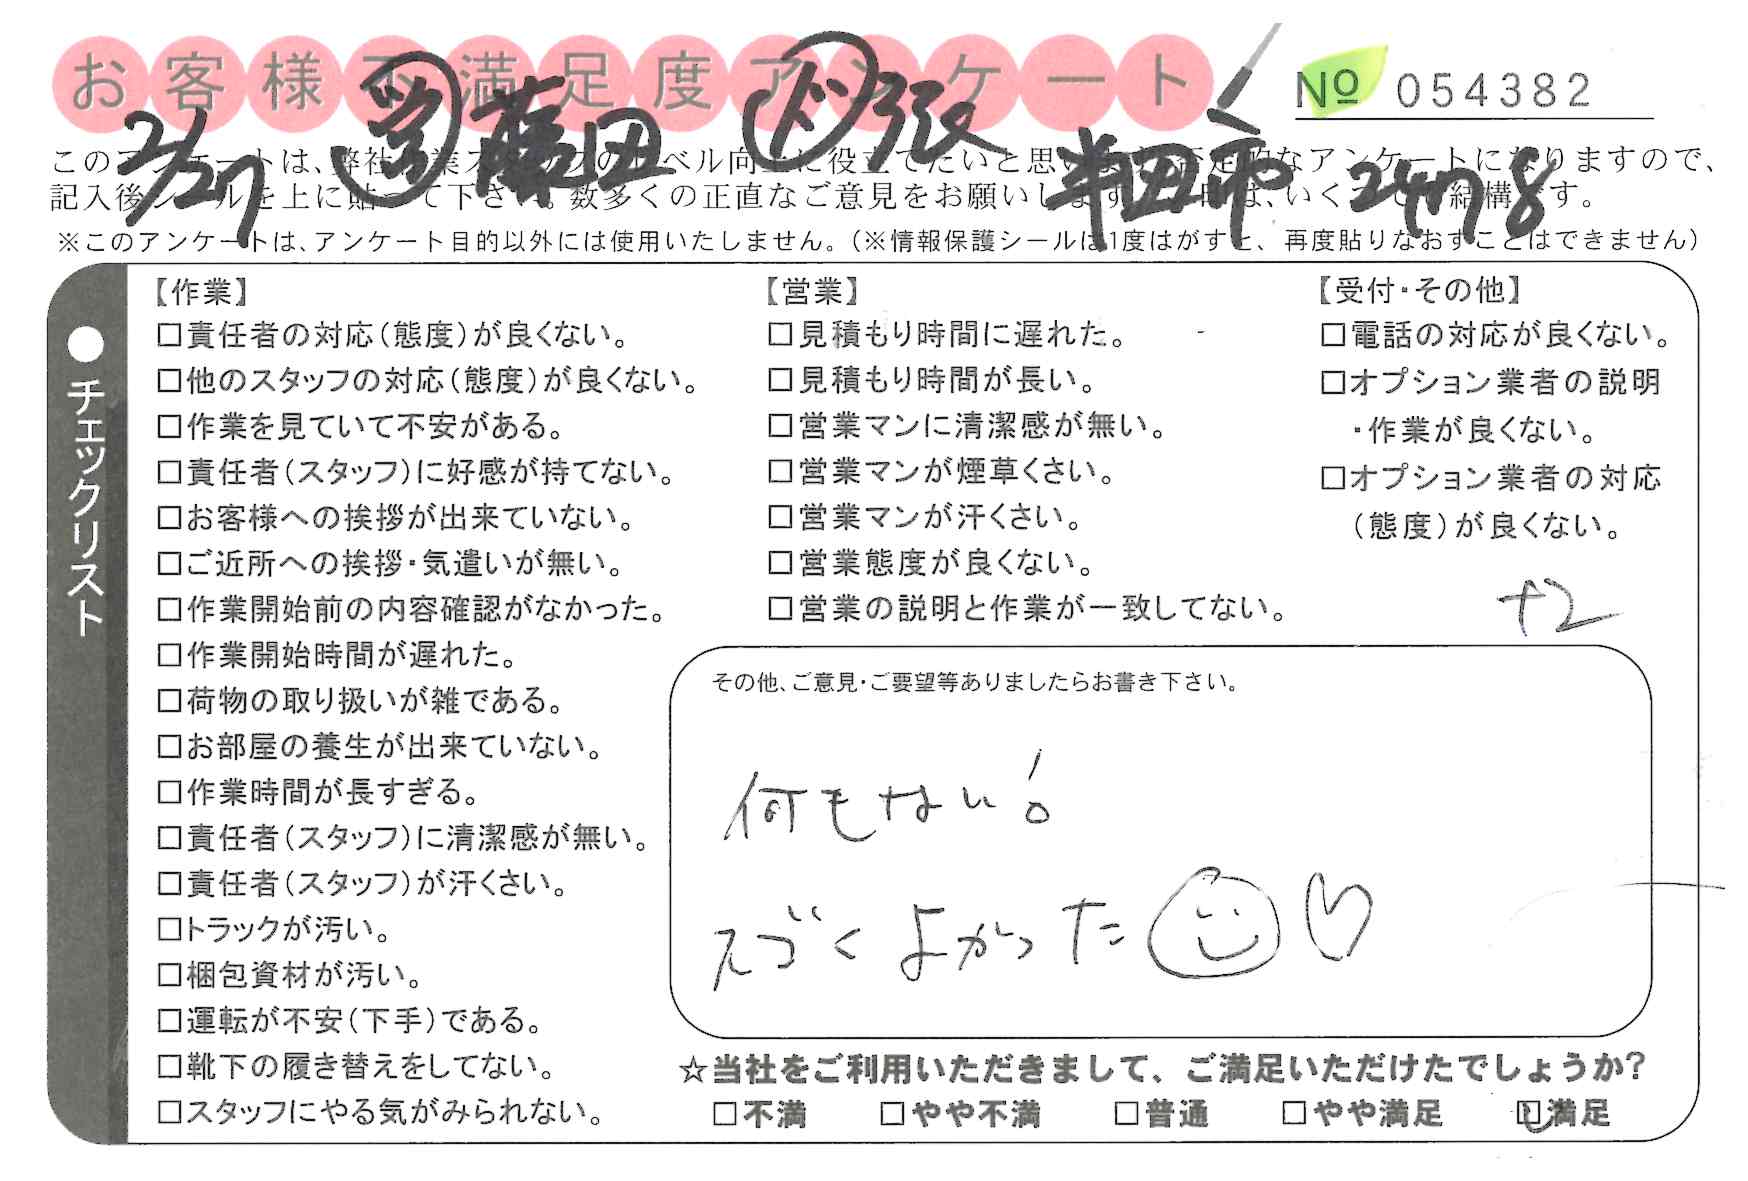 お客様不満足度アンケート
№ 054382
2/27 営 藤田 ド 張 半田市
このアンケートは、弊社作業スタッフのレベル向上に役立てたいと思います。否定的なアンケートになりますので、
記入後シールを上に貼って下さい。数多くの正直なご意見をお願いします。 は、いくつでも結構です。
※このアンケートは、アンケート目的以外には使用いたしません。(※情報保護シールは1度はがすと、再度貼りなおすことはできません)
●チェックリスト
【作業】
□責任者の対応(態度)が良くない。
□他のスタッフの対応(態度)が良くない。
□作業を見ていて不安がある。
□責任者(スタッフ)に好感が持てない。
□お客様への挨拶が出来ていない。
□ご近所への挨拶・気遣いが無い。
□作業開始前の内容確認がなかった。
□作業開始時間が遅れた。
□荷物の取り扱いが雑である。
□お部屋の養生が出来ていない。
□作業時間が長すぎる。
□責任者(スタッフ)に清潔感が無い。
□責任者(スタッフ)が汗くさい。
□トラックが汚い。
□梱包資材が汚い。
□運転が不安(下手)である。
□靴下の履き替えをしてない。
□スタッフにやる気がみられない。
【営業】
□見積もり時間に遅れた。
□見積もり時間が長い。
□営業マンに清潔感が無い。
□営業マンが煙草くさい。
□営業マンが汗くさい。
□営業態度が良くない。
□営業の説明と作業が一致してない。
【受付・その他】
□電話の対応が良くない。
□オプション業者の説明
・作業が良くない。
□オプション業者の対応
(態度)が良くない。
+2
その他、ご意見・ご要望等ありましたらお書き下さい。
何もない!
すごくよかった
☆当社をご利用いただきまして、ご満足いただけたでしょうか?
□不満 □やや不満 □普通 □やや満足 ☑満足